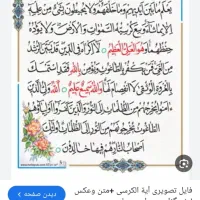 يَعْلَمُ مَا بَيْنَ اَيْدِيهِمْ وَمَا خَلْفَهُمْ وَلَا يُحِيطُونَ بِشَيْءٍ مِنْ عِلْمِهِ
اِلَّا بِمَا شَاءَ وَسِعَ كُرْسِيُّهُ السَّمٰوَاتِ وَالْاَرْضَ وَلَا يَؤُدُهُ
حِفْظُهُمَا وَهُوَ الْعَلِيُّ الْعَظِيمُ لَا اِكْرَاهَ فِي الدِّينِ قَدْ تَبَيَّنَ الرُّشْدُ
مِنَ الْغَيِّ فَمَنْ يَكْفُرْ بِالطَّاغُوتِ وَيُؤْمِنْ بِاللهِ فَقَدِ اسْتَمْسَكَ
بِالْعُرْوَةِ الْوُثْقٰى لَا انْفِصَامَ لَهَا وَاللهُ سَمِيعٌ عَلِيمٌ اَللهُ وَلِيُّ الَّذِينَ
اٰمَنُوا يُخْرِجُهُمْ مِنَ الظُّلُمَاتِ اِلَى النُّورِ وَالَّذِينَ كَفَرُوا اَوْلِيَاؤُهُمُ
الطَّاغُوتُ يُخْرِجُونَهُمْ مِنَ النُّورِ اِلَى الظُّلُمَاتِ اُولٰئِكَ
اَصْحَابُ النَّارِ هُمْ فِيهَا خَالِدُونَ
فایل تصویری آیة الکرسی +متن وعکس
دیدن صفحه